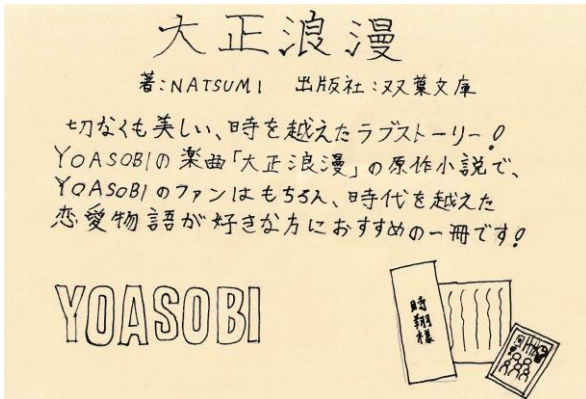 大正浪漫
著:NATSUMI 出版社:双葉文庫
切なくも美しい、時を越えたラブストーリー!
YOASOBIの楽曲「大正浪漫」の原作小説で、
YOASOBIのファンはもちろん、時代を越えた
恋愛物語が好きな方におすすめの一冊です!
YOASOBI
時翔様